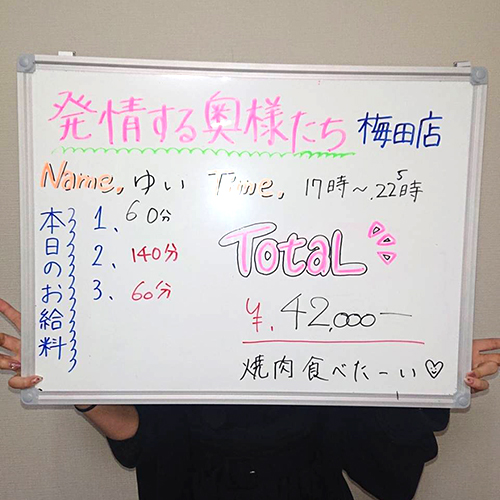 発情する奥様たち 梅田店
Name, ゆい Time, 17時〜22.5時
本日のお給料
1、60分
2、140分
3、60分
Total
¥.42,000ー
焼肉食べたーい♡